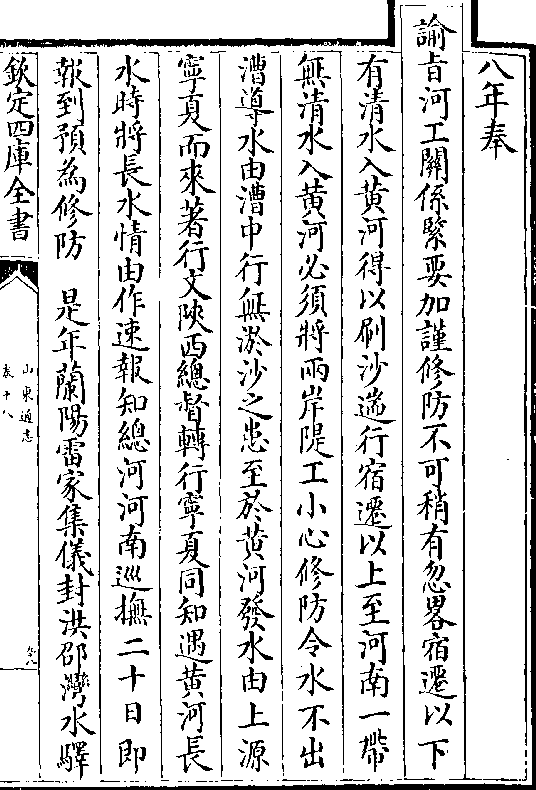 八年奉
諭旨河工關係緊要加謹修防不可稍有忽畧宿遷以下
有清水入黄河得以刷沙遄行宿遷以上至河南一帶
無清水入黄河必須將兩岸隄工小心修防令水不出
漕導水由漕中行無淤沙之患至於黄河發水由上源
寧夏而來著行文陝西總督轉行寧夏同知遇黄河長
水時將長水情由作速報知總河河南巡撫二十日即
報到預為修防　是年蘭陽雷家集儀封洪邵灣水驛
欽定四庫全書
山東通志
卷十八